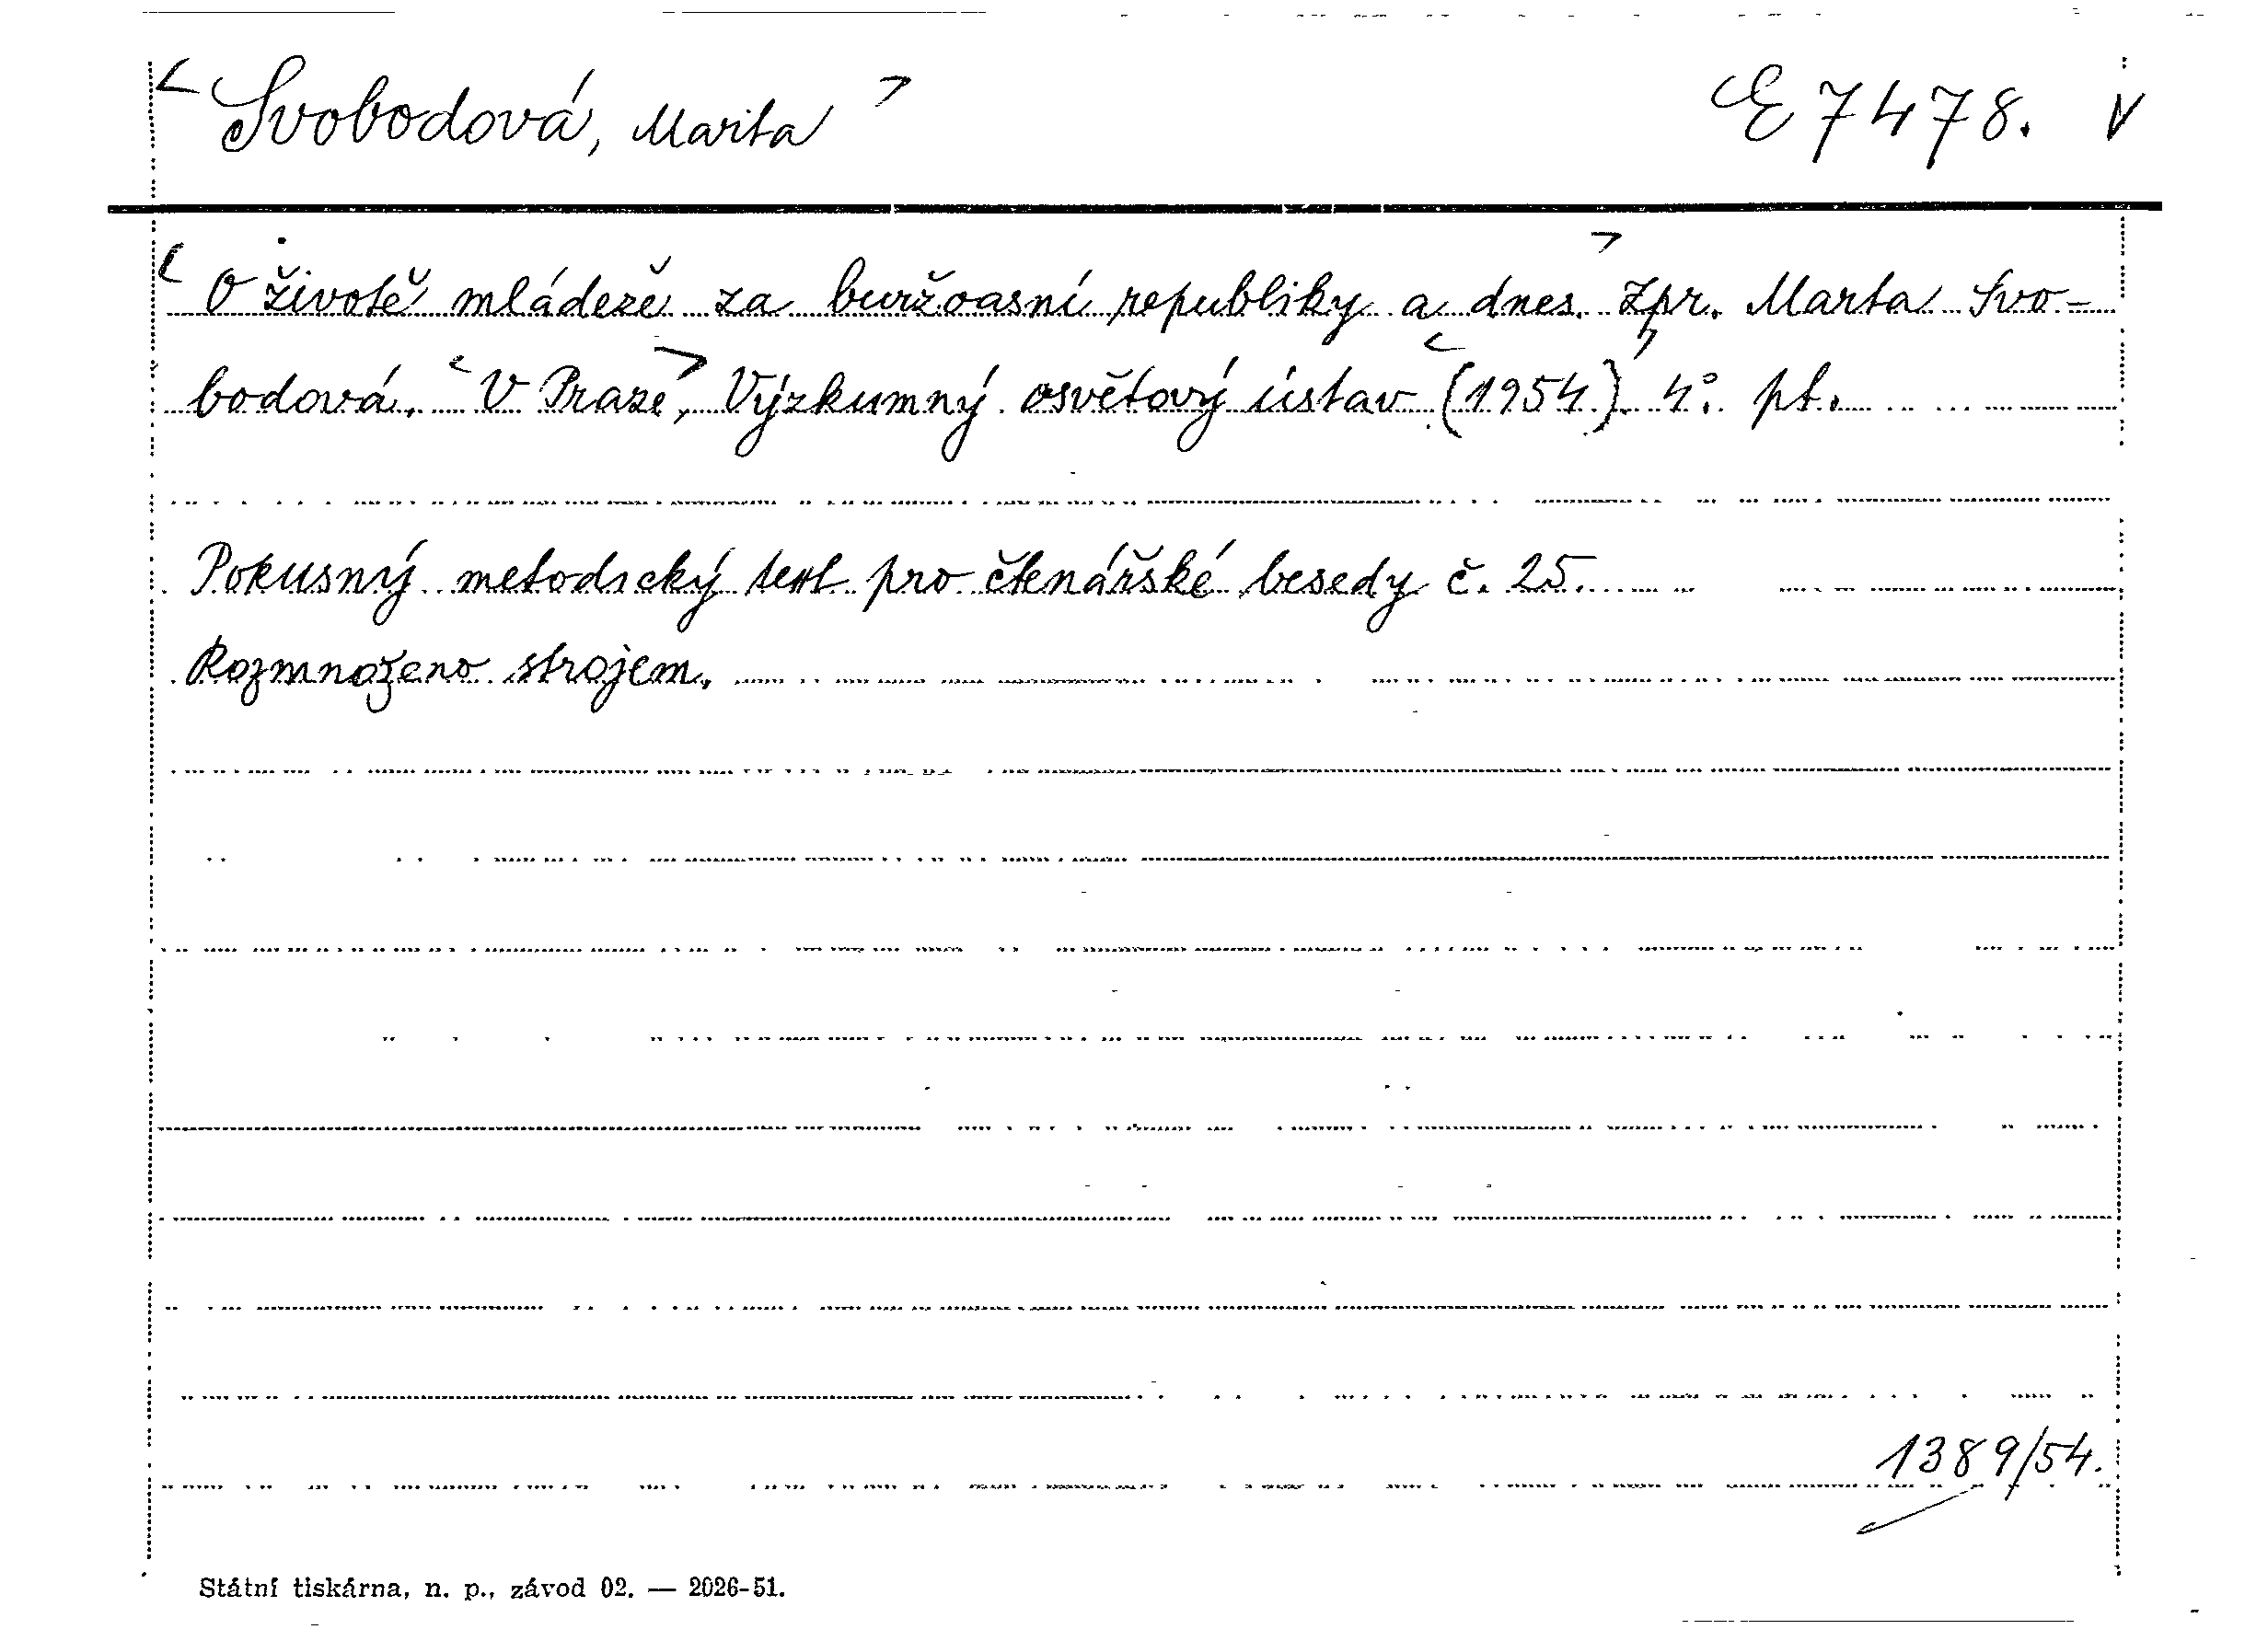 Svobodová, Marta E 7478. V
O životě mládeže za buržoasní republiky a dnes. Zpr. Marta Svo-
bodová. V Praze, Výzkumný osvětový ústav (1954). 4°. pt.
Pokusný metodický text pro čtenářské besedy č. 25.
Rozmnoženo strojem.
1389/54.
Státní tiskárna, n. p., závod 02. — 2026-51.